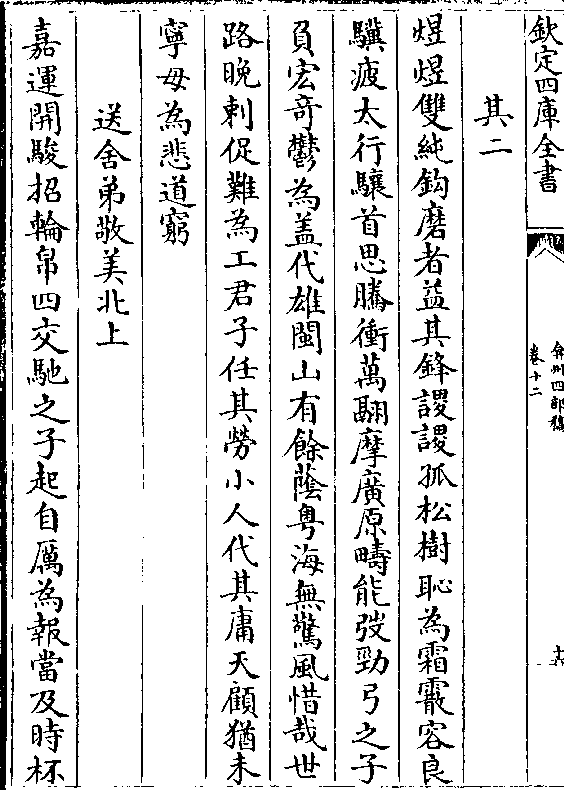 欽定四庫全書
弇州四部稿
卷十二
十六
其二
煜煜雙純鈎磨者益其鋒謖謖孤松樹恥為霜霰容良
驥疲太行驤首思騰衝萬翮摩廣原疇能弢勁弓之子
負宏奇鬱為蓋代雄閩山有餘蔭粤海無驚風惜哉世
路晚刺促難為工君子任其勞小人代其庸天顧猶未
寧毋為悲道窮
送舍弟敬美北上
嘉運開駿招輪帛四交馳之子起自厲為報當及時杯